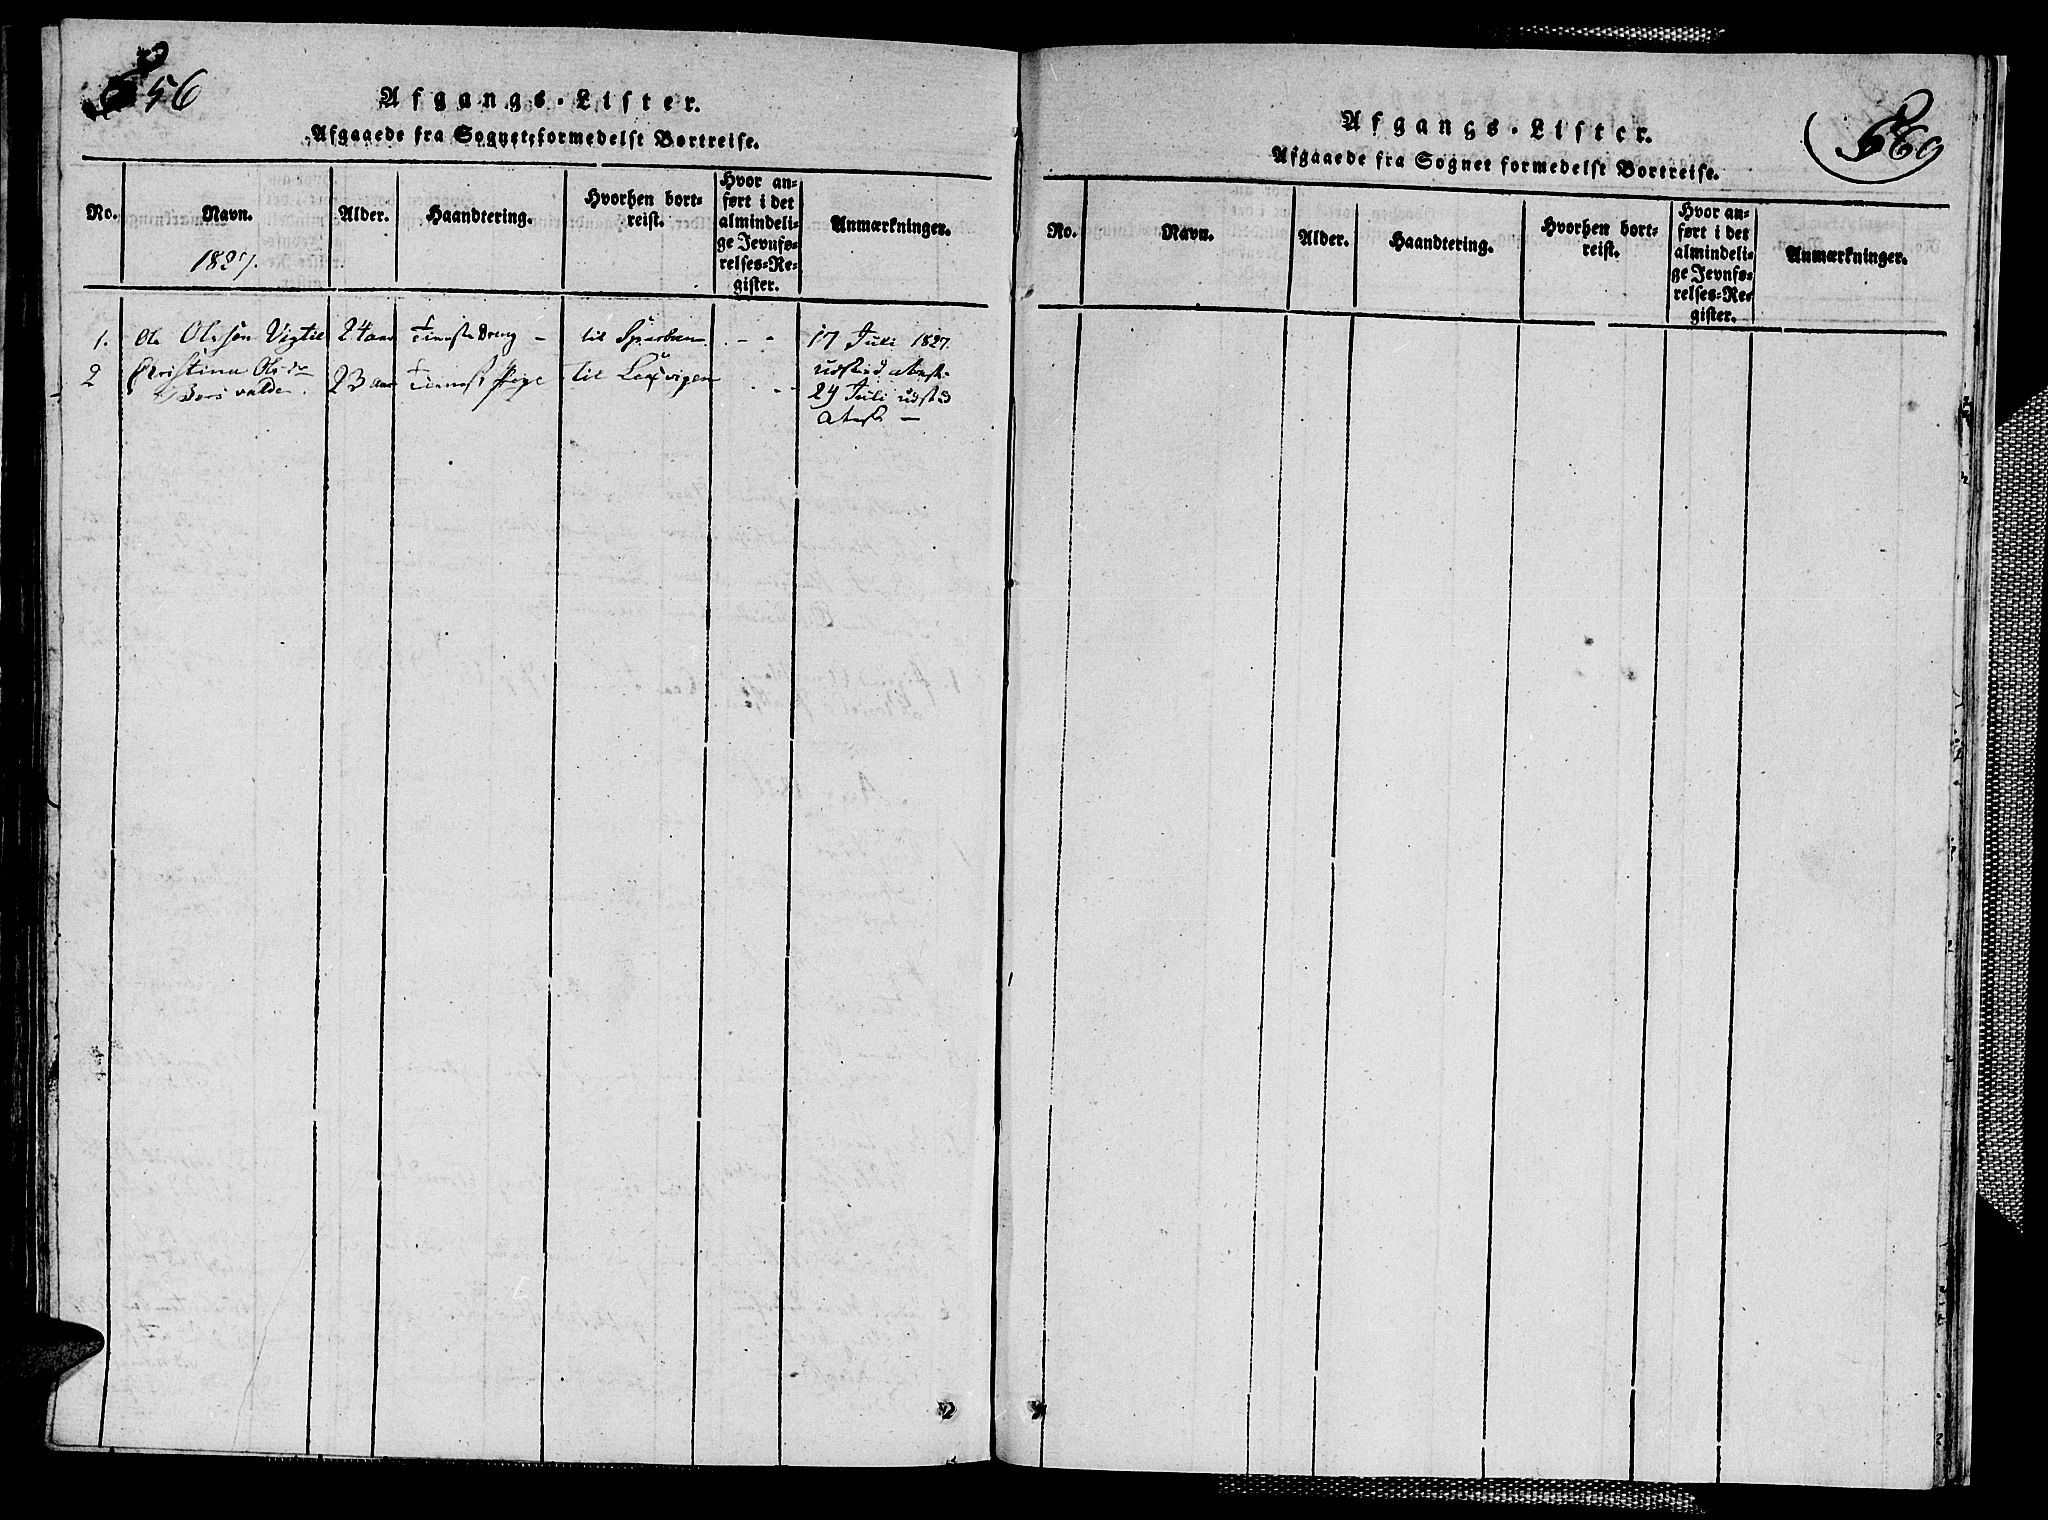 56
Afgangs-Lister.
Afgaaede fra Sognet formedelst Bortreise.
No. Navn. Alder. Haandtering. Hvorhen bortreist. Hvor anført i det almindelige Jevnførelses-Register. Anmærkninger.
1827.
1. Ole Olssøn Vigtil 24 aar Tieneste Dreng - til Sparboen - - 17 Juli 1827.
udstæd atest.
2 Christina Olsdr 23 aar Tienest Pige til Laxvigen - - 24 Juli udstæd
atest —
Afgangs-Lister.
Afgaaede fra Sognet formedelst Bortreise.
No. Navn. Alder. Haandtering. Hvorhen bortreist. Hvor anført i det almindelige Jevnførelses-Register. Anmærkninger.